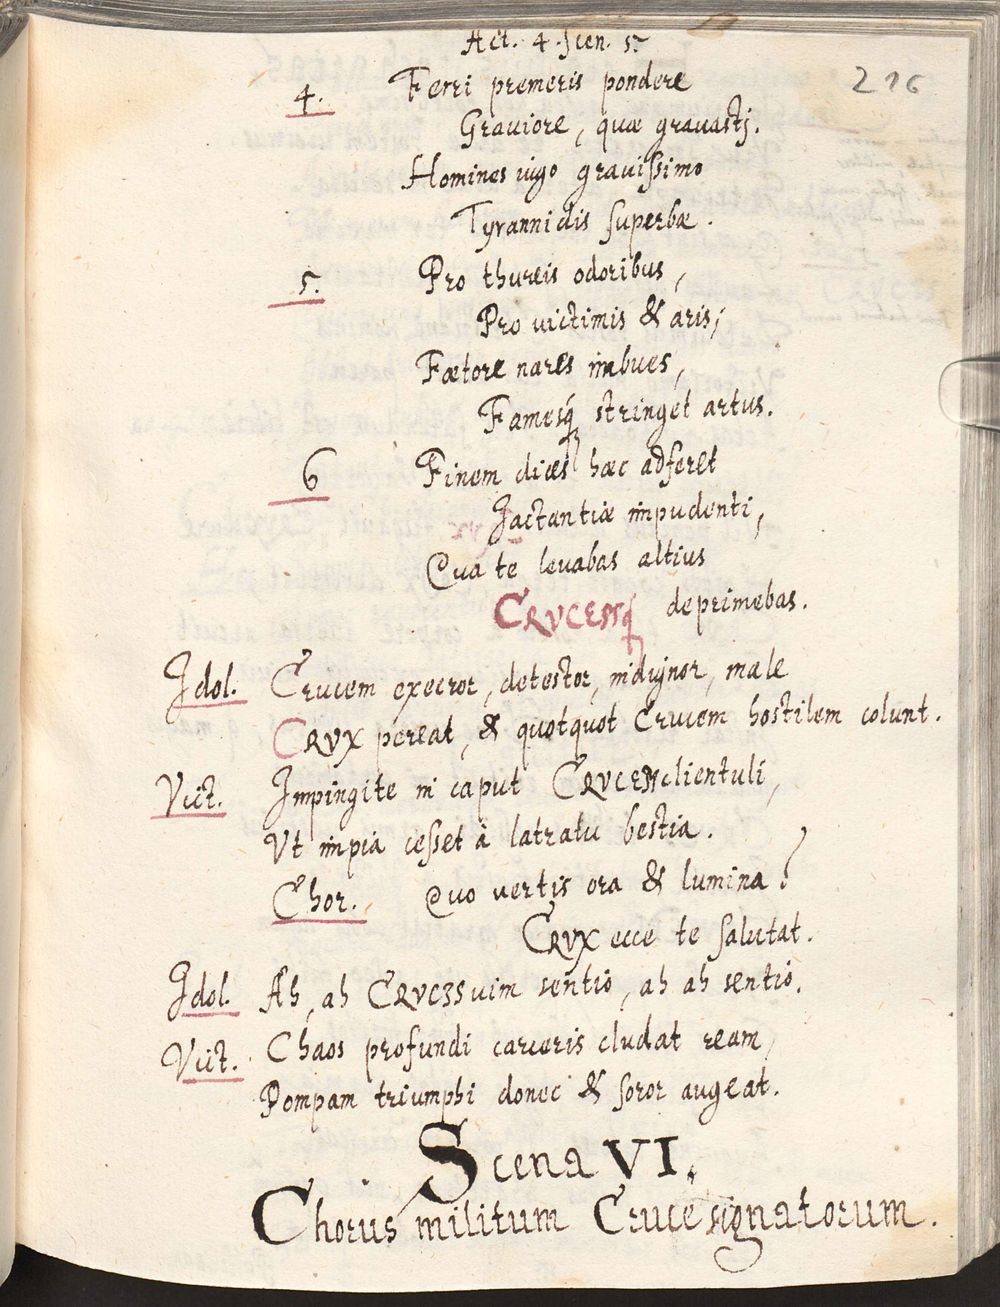 Act. 4. Scen. 5.
216
4. Ferri premeris pondere
Grauiore, quæ grauastj.
Homines iugo grauissimo
Tyrannidis superbæ.
5. Pro thureis odoribus,
Pro victimis & aris;
Fœtore nares imbues,
Famesq́ stringet artus.
6 Finem dies hæc adferet
Jactantiæ impudenti,
Qua te leuabas altius
CRVCEMq́ deprimebas.
Idol. Crucem execror, detestor, indignor, male
CRVX pereat, & quotquot Crucem hostilem colunt.
Vict. Impingite in caput CRVCEM clientuli,
Vt impia cesset à latratu bestia.
Chor. Quo vertis ora & lumina?
CRVX ecce te salutat.
Idol. Ah, ah CRVCIS uim sentio, ah ah sentio.
Vict. Chaos profundi carceris cludat ream,
Pompam triumphi donec & soror augeat.
Scena VI.
Chorus militum Crucesignatorum.